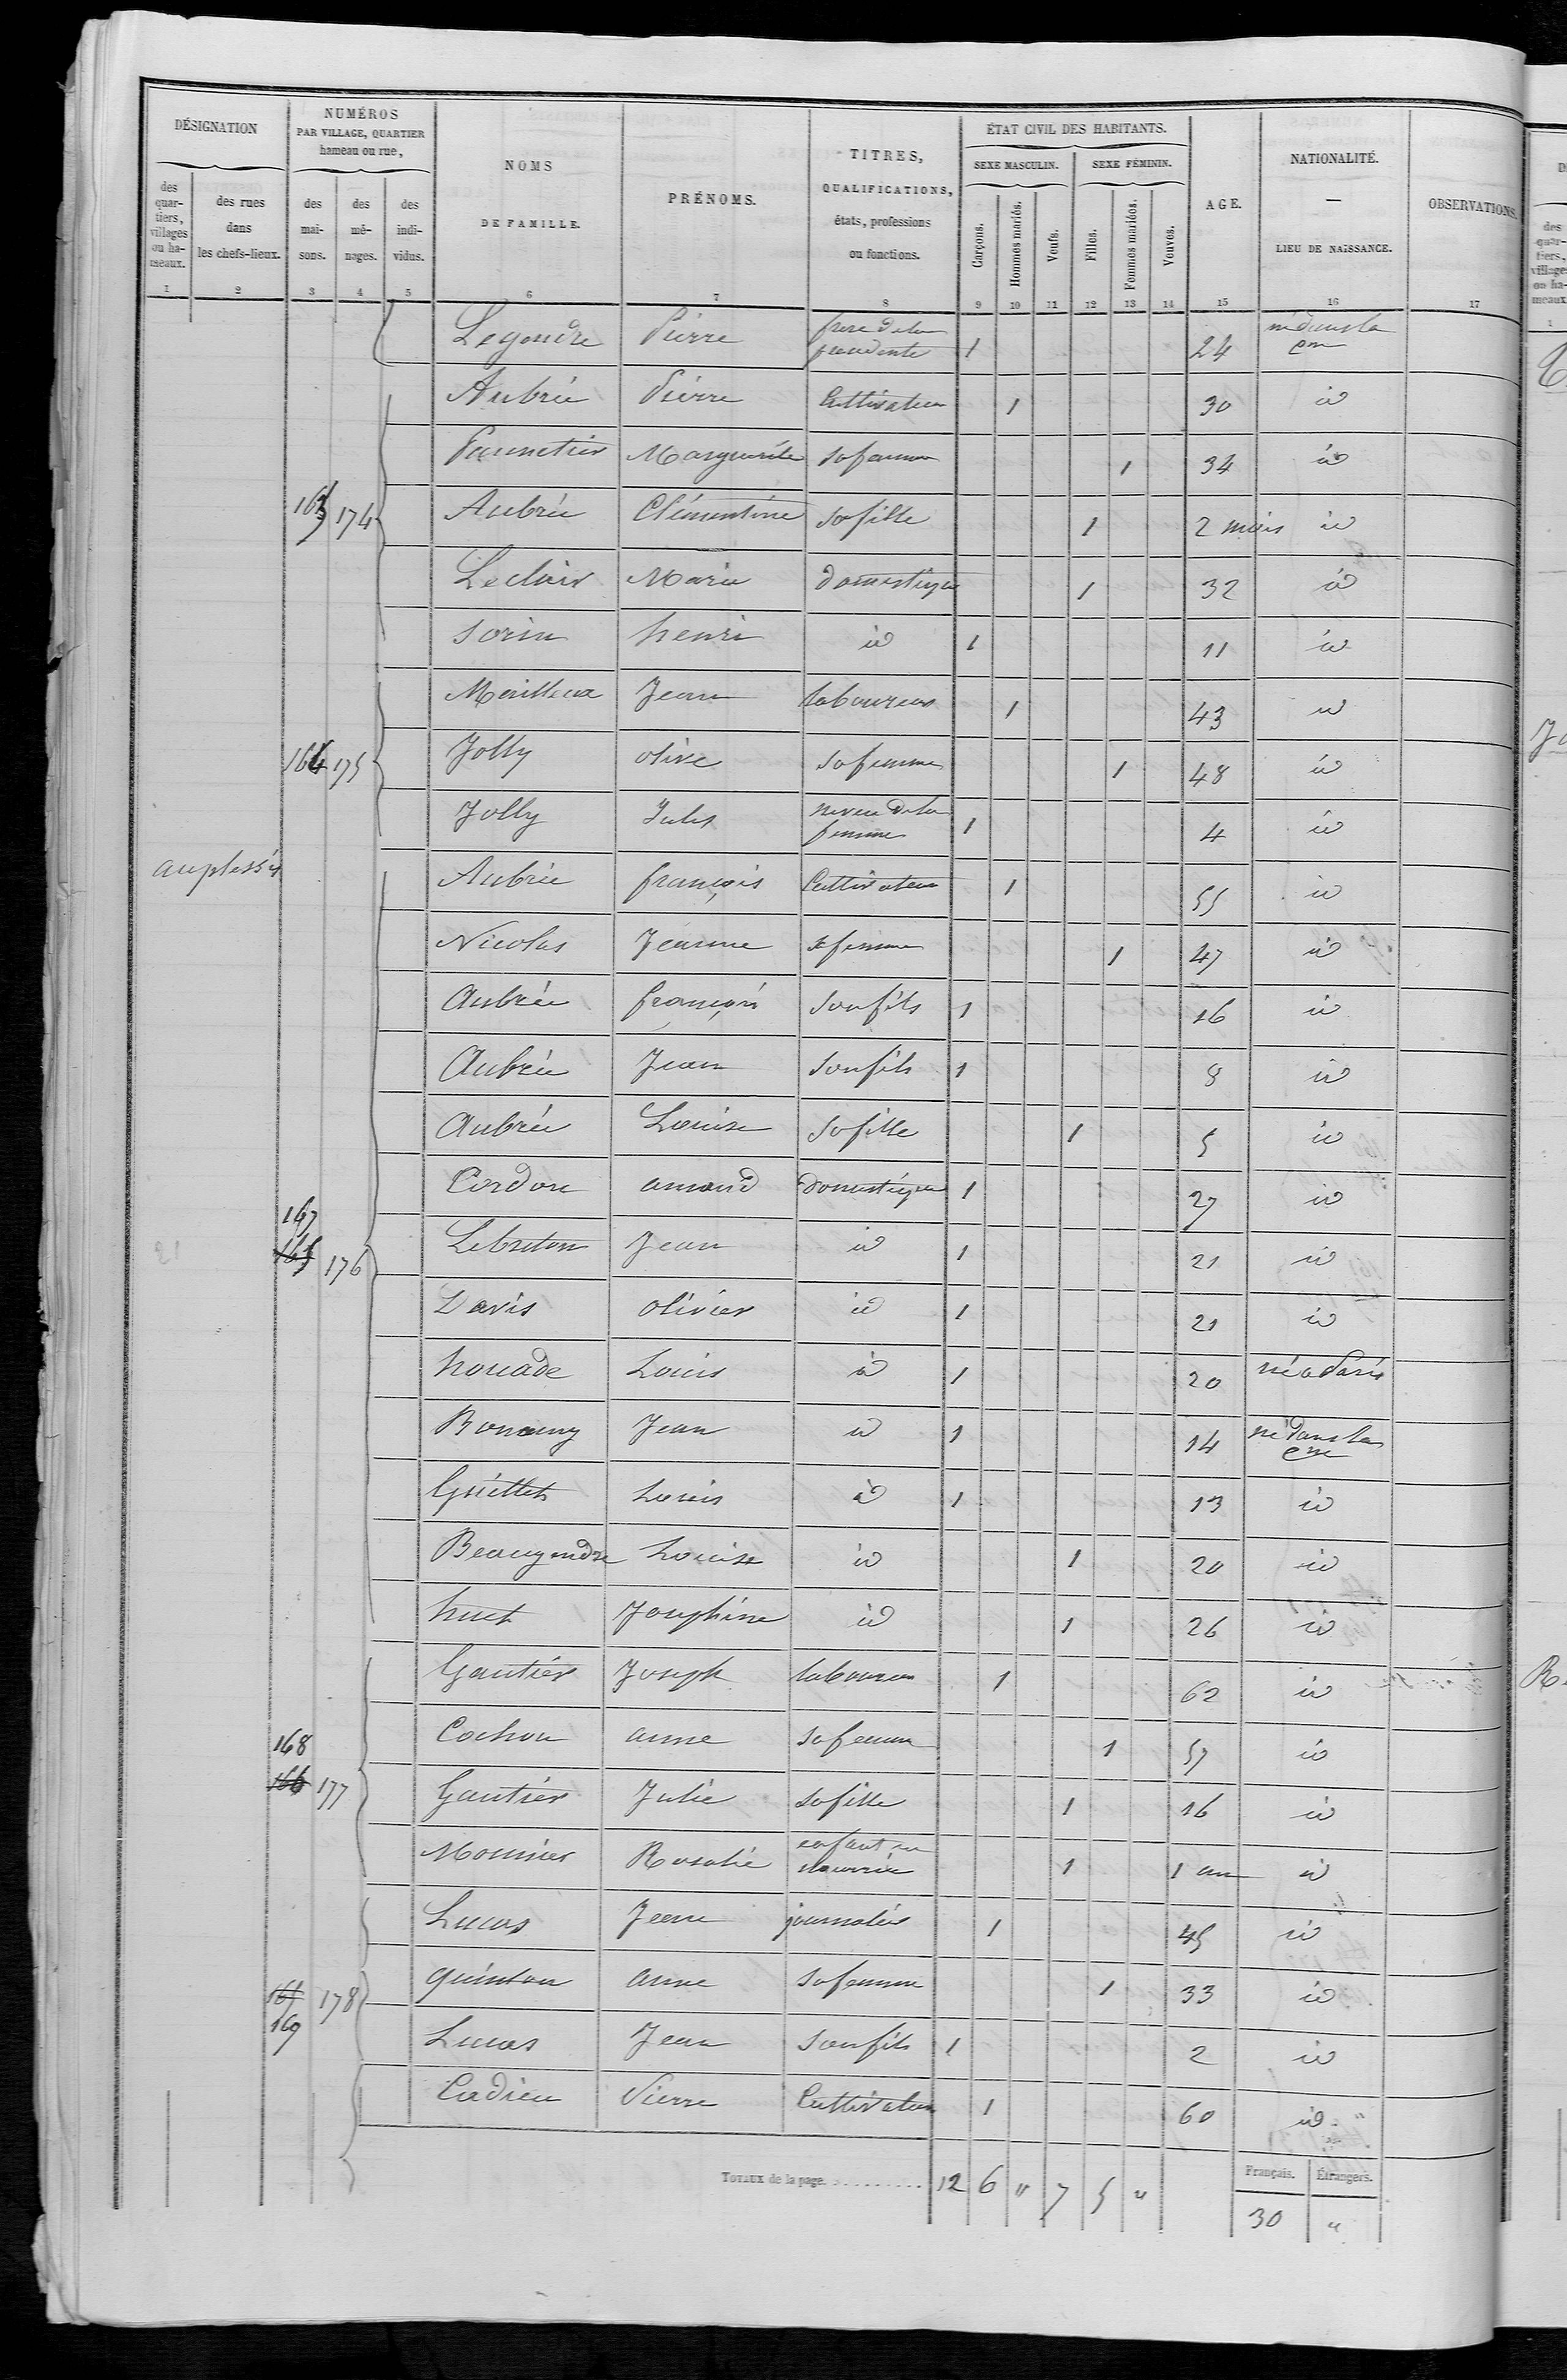 DÉSIGNATION
NUMÉROS
PAR VILLAGE, QUARTIER
hameau ou rue,
NOMS
DE FAMILLE.
PRÉNOMS.
TITRES,
QUALIFICATIONS,
états, professions
ou fonctions.
ÉTAT CIVIL DES HABITANTS.
SEXE MASCULIN. SEXE FÉMININ.
AGE.
NATIONALITÉ.
—
LIEU DE NAISSANCE.
OBSERVATIONS.
des quar-tiers, villages ou ha-meaux.
des rues dans les chefs-lieux.
des mai-sons.
des mé-nages.
des indi-vidus.
Garçons. Hommes mariés. Veufs. Filles. Femmes mariées. Veuves.
1 2 3 4 5 6 7 8 9 10 11 12 13 14 15 16 17
Legendre Pierre frère de la précédente 1 24 né dans la cne
Aubrée Pierre Cultivateur 1 30 id
Marguerite sa femme 1 34 id
163 174 Aubrée Clémentine sa fille 1 2 mois id
Leclair Marie domestique 1 32 id
Sorin henri id 1 11 id
Jean laboureur 1 43 id
164 175 Jolly olive sa femme 1 48 id
Jolly Jules neveu de la femme 1 4 id
au plessis Aubrée françois Cultivateur 1 55 id
Nicolas Jeanne sa femme 1 47 id
Aubrée françois son fils 1 16 id
Aubrée Jean son fils 1 8 id
Aubrée Louise sa fille 1 5 id
Cordon amand domestique 1 27 id
167
165 176 Lebreton Jean id 1 21 id
Davis olivier id 1 21 id
houade Louis id 1 20 né a Paris
Jean id 1 14 né dans la cne
Louis id 1 13 id
Beaugendre Louise id 1 20 id
huet Josephine id 1 26 id
Gautier Joseph laboureur 1 62 id
168
166 177 Cochon anne sa femme 1 57 id
Gautier Julie sa fille 1 16 id
Monnier Rosalie enfant en nourrice 1 1 an id
Lucas Jean journalier 1 45 id
167 178 quinton anne sa femme 1 33 id
169
Lucas Jean son fils 1 2 id
Cadieu Pierre Cultivateur 1 60 id
TOTAUX de la page. 12 6 " 7 5 "
Français. Étrangers.
30 "